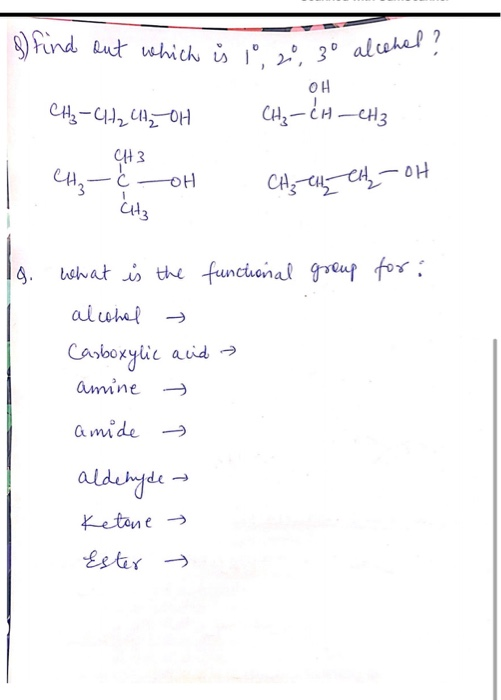 Q) find out which is 1°, 2°, 3° alcohol ?
OH
CH3-CH2 CH2-OH CH3-CH-CH3
CH3
CH3-C-OH CH3-CH2-CH2-OH
CH3
Q. What is the functional group for :
alcohol →
Carboxylic acid →
amine →
amide →
aldehyde →
Ketone →
Ester →